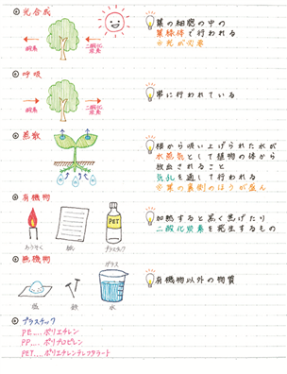 ◎光合成
酸素
二酸化炭素
葉の細胞の中の
葉緑体で行われる
※光が必要
◎呼吸
酸素
二酸化炭素
常に行われている
◎蒸散
根から吸い上げられた水が
水蒸気として植物の体から
放出されること
気孔を通して行われる
※葉の裏側のほうが盛ん
◎有機物
ろうそく
紙
PET
プラスチック
加熱すると黒く焦げたり
二酸化炭素を発生するもの
◎無機物
塩
鉄
水
有機物以外の物質
◎プラスチック
PE....ポリエチレン
PP....ポリプロピレン
PET...ポリエチレンテレフタラート